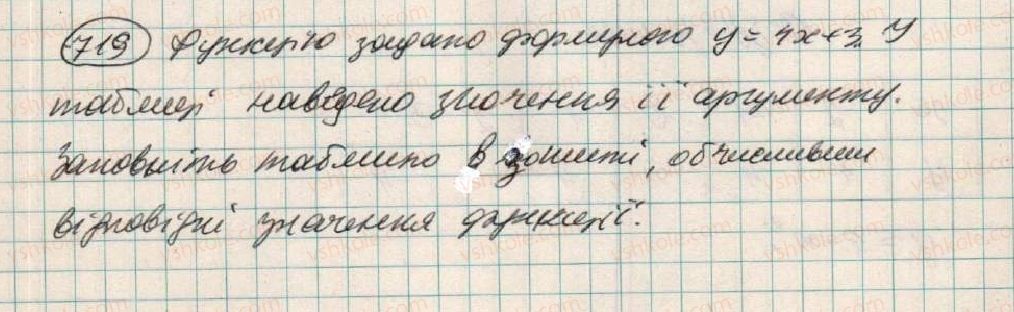 719 Функцію задано формулою y = 4x+3. У
таблиці наведено значення її аргументу.
Заповніть таблицю в зошиті, обчисливши
відповідні значення функції.